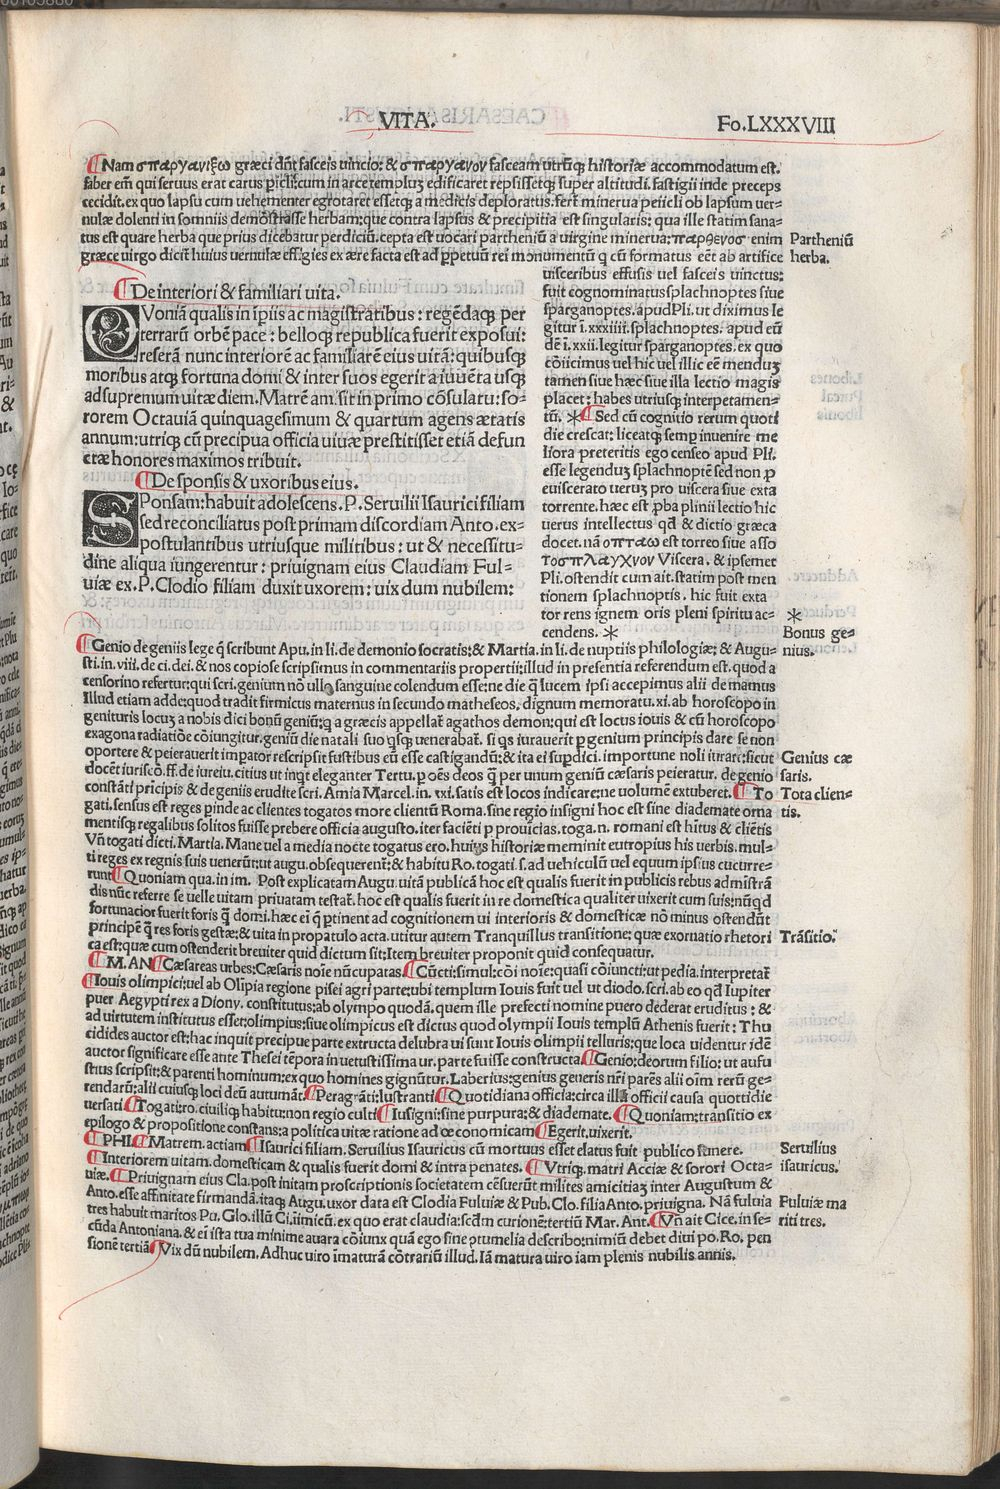 VITA.
Fo.LXXXVIII
¶Nam σπαργανιξω græci dñt fasceis uincio: & σπαργανον fasceam utrũq; historiæ accommodatum est.
faber em̃ qui seruus erat carus picli: cum in arce templuʒ edificaret repsissetq; super altitudi. fastigii inde preceps
cecidit. ex quo lapsu cum uehementer egrotaret essetq; a medicis deploratus: fert̃ minerua peticli ob lapsum uer-
nulæ dolenti in somniis demõstrasse herbam: que contra lapsus & precipitia est singularis: qua ille statim sana-
tus est quare herba que prius dicebatur perdiciũ. cepta est uocari partheniũ a uirgine minerua: παρθενοσ enim
græce uirgo dicit̃ huius uernulæ effigies ex ære facta est ad ꝑpetuũ rei monumentũ q cũ formatus eẽt ab artifice
Partheniũ
herba.
uisceribus effusis uel fasceis uinctus:
fuit cognominatus splachnoptes siue
sparganoptes. apud Pli. ut diximus le
gitur l. xxxiiii. splachnoptes. apud eũ
dẽ l. xxii. legitur sparganoptes. ex quo
cõiicimus uel hic uel illic eẽ menduʒ
tamen siue hæc siue illa lectio magis
placet: habes utriusq; interpetamen-
tũ. * ¶Sed cũ cognitio rerum quoti
die crescat: liceatq; semp̱ inuenire me
liora preteritis ego censeo apud Pli.
esse legenduʒ splachnoptẽ sed non ꝓ
euiscerato ueruʒ pro uiscera siue exta
torrente. hæc est ꝓba plinii lectio hic
uerus intellectus qđ & dictio græca
docet. nã οπταω est torreo siue asso
Τοσπλαγχνον Viscera. & ipsemet
Pli. ostendit cum ait. statim post men
tionem splachnoptis. hic fuit exta
tor rens ignem oris pleni spiritu ac-
cendens. *
¶De interiori & familiari uita.
QVoniã qualis in ipiis ac magistratibus: regẽdaq; per
terrarũ orbẽ pace: belloq; republica fuerit exposui:
referã nunc interiorẽ ac familiarẽ eius uitã: quibusq;
moribus atq; fortuna domi & inter suos egerit a iuuẽta usq;
ad supremum uitæ diem. Matrẽ am. sit in primo cõsulatu: so-
rorem Octauiã quinquagesimum & quartum agens ætatis
annum: utriq; cũ precipua officia uiuæ prestitisset etiã defun
ctæ honores maximos tribuit.
¶De sponsis & uxoribus eius.
SPonsam: habuit adolescens. P. Seruilii Isaurici filiam
sed reconciliatus post primam discordiam Anto. ex-
postulantibus utriusque militibus: ut & necessitu-
dine aliqua iungerentur: priuignam eius Claudiam Ful-
uiæ ex. P. Clodio filiam duxit uxorem: uix dum nubilem:
*
Bonus ge-
nius.
¶Genio de geniis lege q̃ scribunt Apu. in li. de demonio socratis: & Martia. in li. de nuptiis philologiæ: & Augu-
sti. in. viii. de ci. dei. & nos copiose scripsimus in commentariis propertii: illud in presentia referendum est. quod a
censorino refertur: qui scri. genium nõ ullo sanguine colendum esse: ne die q̃ lucem ipsi accepimus alii demamus
Illud etiam adde: quod tradit firmicus maternus in secundo matheseos, dignum memoratu. xi. ab horoscopo in
genituris locuʒ a nobis dici bonũ geniũ: q̃ a græcis appellat̃ agathos demon: qui est locus iouis & cũ horoscopo
exagona radiatiõe cõiungitur. geniũ die natali suo q̃sq; uenerabat̃. si q̃s iurauerit ꝑ genium principis dare se non
oportere & peierauerit impator rescripsit fustibus eũ esse castigandũ: & ita ei sup̱dici. importune noli iurare: sicut
docẽt iuriscõ. ff. de iureiu. citius ut inq̃t eleganter Tertu. p oẽs deos q̃ per unum geniũ cæsaris peieratur. de genio
constãti pricipis & de geniis erudite scri. Amia Marcel. in. xxi. satis est locos indicare: ne uolumẽ extuberet. ¶To
Genius cæ
saris.
Tota clien-
tis.
gati. sensus est reges pinde ac clientes togatos more clientũ Roma. sine regio insigni hoc est sine diademate orna
mentisq; regalibus solitos fuisse prebere officia augusto. iter faciẽti p prouicias. toga. n. romani est hitus & cliẽtis
Vñ togati dicti. Martia. Mane uel a media nocte togatus ero. huius historiæ meminit eutropius his uerbis. mul-
ti reges ex regnis suis uenerũt: ut augu. obsequerent̃: & habitu Ro. togati. s. ad uehiculũ uel equum ipsius cucurre-
runt ¶Quoniam qua. in im. Post explicatam Augu. uitã publicã hoc est qualis fuerit in publicis rebus admĩstrã
dis nũc referre se uelle uitam priuatam testat̃. hoc est qualis fuerit in re domestica qualiter uixerit cum suis: nũqd
fortunacior fuerit foris q̃ domi. hæc ei q̃ ptinent ad cognitionem ui interioris & domesticæ nõ minus ostendũt
principẽ q̃ res foris gestæ: & uita in propatulo acta. utitur autem Tranquillus transitione: quæ exornatio rhetori
Trãsitio.
ca est: quæ cum ostenderit breuiter quid dictum sit: Item breuiter proponit quid consequatur.
¶M. AN ¶Cæsareas urbes: Cæsaris noĩe nũcupatas. ¶Cũcti: simul: cõi noĩe: quasi cõiuncti: ut pedia. interpretat̃
¶Iouis olimpici: uel ab Olipia regione pisei agri parte: ubi templum Iouis fuit uel ut diodo. scri. ab eo qđ Iupiter
puer Aegypti rex a Diony. constitutus: ab olympo quodã. quem ille prefecti nomine puero dederat eruditus: &
ad uirtutem institutus esset: olimpius: siue olimpicus est dictus quod olympii Iouis templũ Athenis fuerit: Thu
cidides auctor est: hac inquit precipue parte extructa delubra ui sunt Iouis olimpii telluris: que loca uidentur idẽ
auctor significare esse ante Thesei tẽpora in uetustissima ur. parte fuisse constructa. ¶Genio: deorum filio: ut aufu
stius scripsit: & parenti hominum: ex quo homines gignũtur. Laberius: genius generis nr̃i parẽs alii oim̃ rerũ ge-
rendarũ: alii cuiusq; loci deũ autumãt. ¶Peragrãti: lustranti ¶Quotidiana officia: circa illa officii causa quottidie
uersati ¶Togati: ro. ciuiliq; habitu: non regio culti ¶Insigni: sine purpura: & diademate. ¶Quoniam: transitio ex
epilogo & propositione constans: a politica uitæ ratione ad œconomicam ¶Egerit. uixerit.
¶PHI. ¶Matrem. actiam ¶Isaurici filiam. Seruilius Isauricus cũ mortuus esset elatus fuit publico funere.
Seruilius
isauricus.
¶Interiorem uitam. domesticam & qualis fuerit domi & intra penates. ¶Vtriq;. matri Acciæ & sorori Octa-
uiæ. ¶Priuignam eius Cla. post initam proscriptionis societatem cẽsuerũt milites amicitiaʒ inter Augustum &
Anto. esse affinitate firmandã. itaq; Augu. uxor data est Clodia Fuluiæ & Pub. Clo. filia Anto. priuigna. Nã fuluia
Fuluiæ ma
riti tres.
tres habuit maritos Pu. Glo. illũ Ci. iimicũ. ex quo erat claudia: sedm̃ curionẽ: tertiũ Mar. Ant. ¶Vñ ait Cice. in se-
cũda Antoniana. & ei ista tua minime auara cõiunx quã ego sine ꝯtumelia describo: nimiũ debet diu ipo. Ro. pen
sionẽ tertiã ¶Vix dũ nubilem. Adhuc uiro ĩmaturã cõtrariũ illud. Iã matura uiro iam plenis nubilis annis.